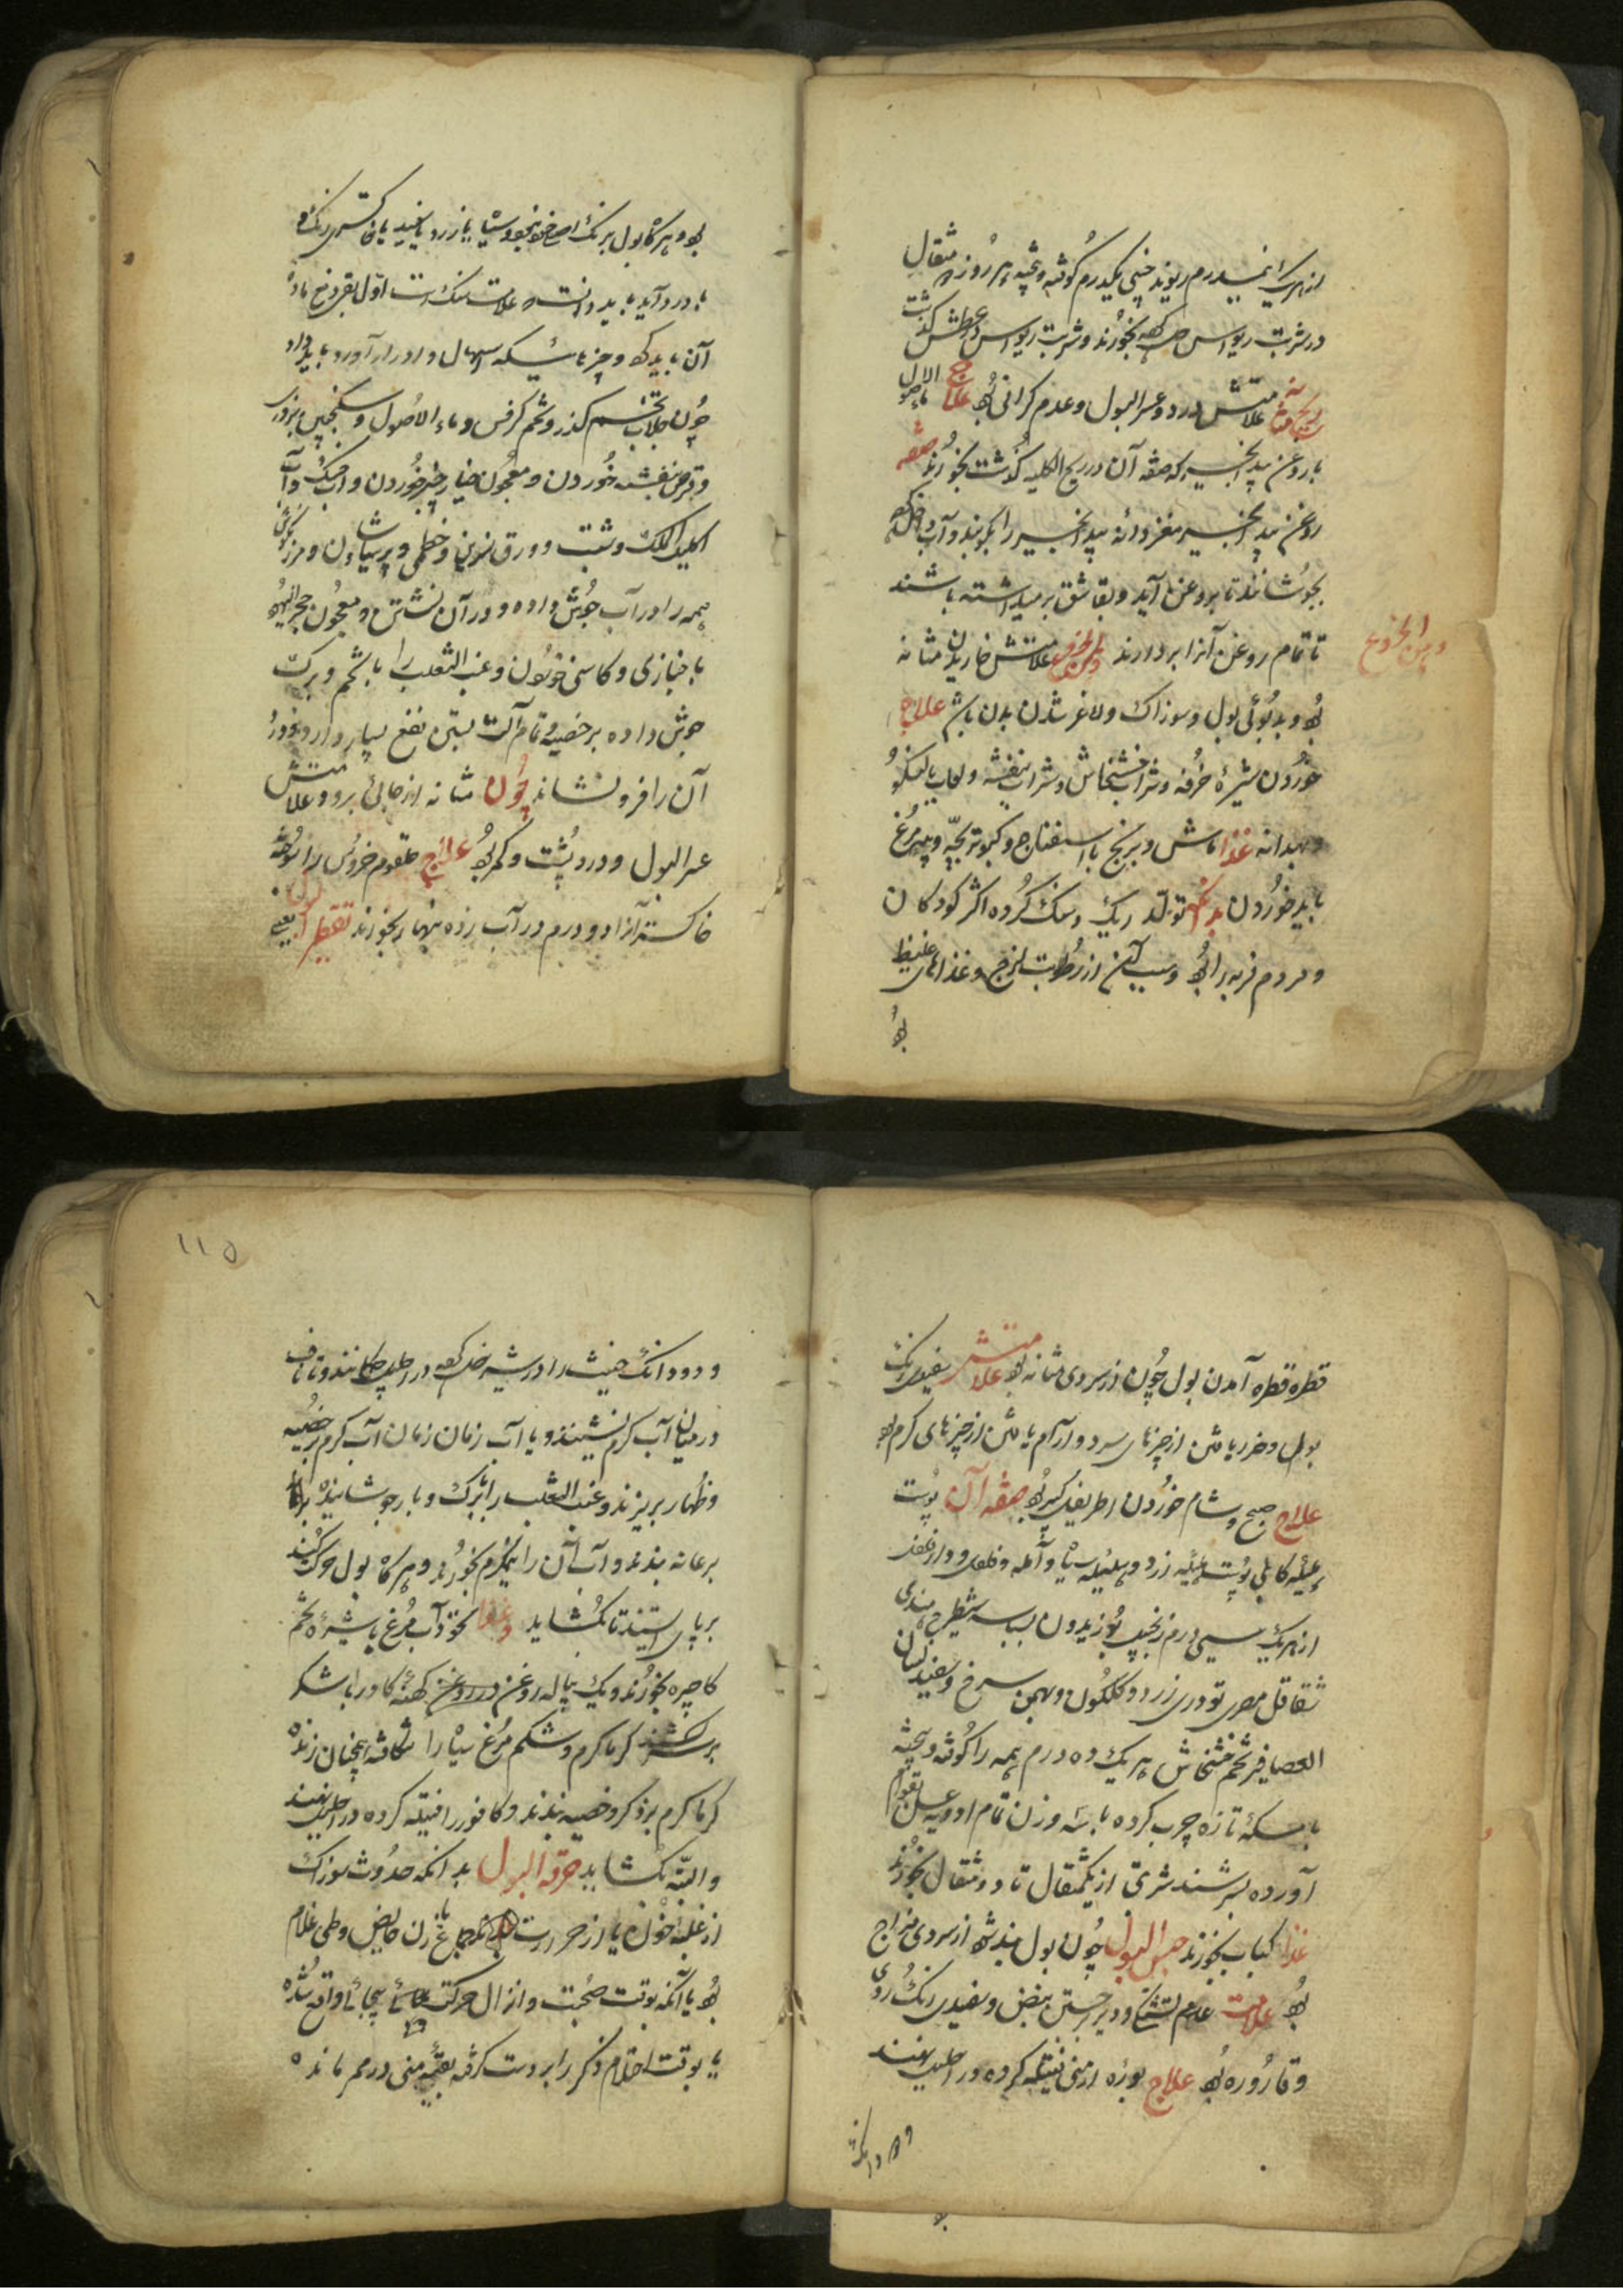 از هر یک نیمدرم ریوند چینی یکدرم کوفته و بیخته هر روز دو مثقال
در شربت ریواس کرده بخورند و شربت ریواس در عطش کذشت
ریح مثانه علامتش درد و عسر البول و عدم کرانی بود علاج ماء الاصول
با روغن بید انجیر که صفه آن در ریح الکلیه کذشت بخورند صفه
روغن بید انجیر مغز دانه بید انجیر را بکوبند و آب داخل کرده
بجوشانند تا بروغن آید و بقاشق برمیداشته باشند
تا تمام روغن آنرا بردارند علامتش خاریدن مثانه
بود و بدبوئی بول و سوزاک و لاغر شدن بدن باشد علاج
خوردن شیرهٔ خرفه و شراب خشخاش و شراب بنفشه و لعاب بالنکو
و بهدانه غذا ماش و برنج با اسفناج و کبوتر بچه و پیه مرغ
باید خوردن بدانکه تولد ریک و سنک کرده اکثر کودکان
و مردم فربه را بود و سبب آن از رطوبت لزج و غذاهای غلیظ
بود
بود و هرکاه بول برنک سرخ و سیاه یا زرد یا سفید یا خاکستری رنک
با درد آید باید دانست که علامت سنک است اول بقی دفع ماده
آن باید کرد و چیزهائیکه اسهال و ادرار آورد باید داد
چون جلاب تخم کذر و تخم کرفس و ماء الاصول و سکنجبین بزوری
و قرص بنفشه خوردن و معجون خیار چنبر خوردن و آب خسک و آب
اکلیل الملک و شبت و ورق و خطمی و پرسیاوشان و مرزنکوش
همه را در آب جوش داده و در آن نشستن و معجون حجر الیهود
با خبازی و کاسنی خوردن و عنب الثعلب را با تخم و برک
جوش داده بر خصیه و تمام آلت بستن نفع بسیار دارد و درد
آن را فرو نشاند چون مثانه از جائی برود علامتش
عسر البول و درد پشت و کمر بود علاج حلقوم خروس را سوخته
خاکستر آنرا دو درم در آب زده نهار بخورند تقطیر البول یعنی
قطره قطره آمدن بول چون از سردی مثانه بود علامتش سفیدی رنک
بول و ضرر یافتن از چیزهای سرد و آرام یافتن از چیزهای کرم بود
علاج صبح و شام خوردن اطریفل کبیر بود صفه آن پوست
هلیله کابلی پوست هلیله زرد و هلیله سیاه و آمله و فلفل و دارفلفل
از هر یک سی درم زنجبیل بوزیدان بسباسه شیطرج هندی
شقاقل مصری تودری زرد و کلکون و بهمن سرخ و سفید لسان
العصافیر تخم خشخاش هر یک ده درم همه را کوفته و بیخته
با مسکهٔ تازه چرب کرده با سه وزن تمام ادویه عسل بقوام
آورده بسرشند شربتی از یکمثقال تا دو مثقال بخورند
غذا کباب بخورند حبس البول چون بول بند شود از سردی مزاج
بود علامت عدم تشنکی و دیر جستن نبض و سفیدی رنک روی
و قاروره بود علاج بوره ارمنی فتیله کرده در احلیل نهند
و دو دانک
۱۱۵
و دو دانک را در شیر حل کرده در احلیل چکانند و تا ناف
در میان آب کرم نشینند و یا آب زمان زمان آب کرم بر خصیه
و ظهار بریزند و عنب الثعلب را با برک و بار جوشانیده
بر عانه بندند و آب آن را نیمکرم بخورند و هرکاه بول حرکت کند
بر پای ایستند تا بکشاید و غذا نخود آب مرغ با شیرهٔ تخم
کاجیره بخورند و یک پیاله روغن در روغن کهنهٔ کاو را با شکر
بر سر کشند کرما کرم و شکم مرغ سیاه را شکافته همچنان زنده
کرما کرم بر ذکر و خصیه بندند و کافور را فتیله کرده در احلیل نهند
و البته بکشاید حرقة البول بدانکه حدوث سوزاک
از غلبهٔ خون یا از حرارت یا جماع زن حایض و طی غلام
بود یا آنکه بوقت صحبت و انزال حرکت بیجائی واقع شده
یا بوقت احتلام ذکر را بدست کرفته بقیهٔ منی در ممر مانده